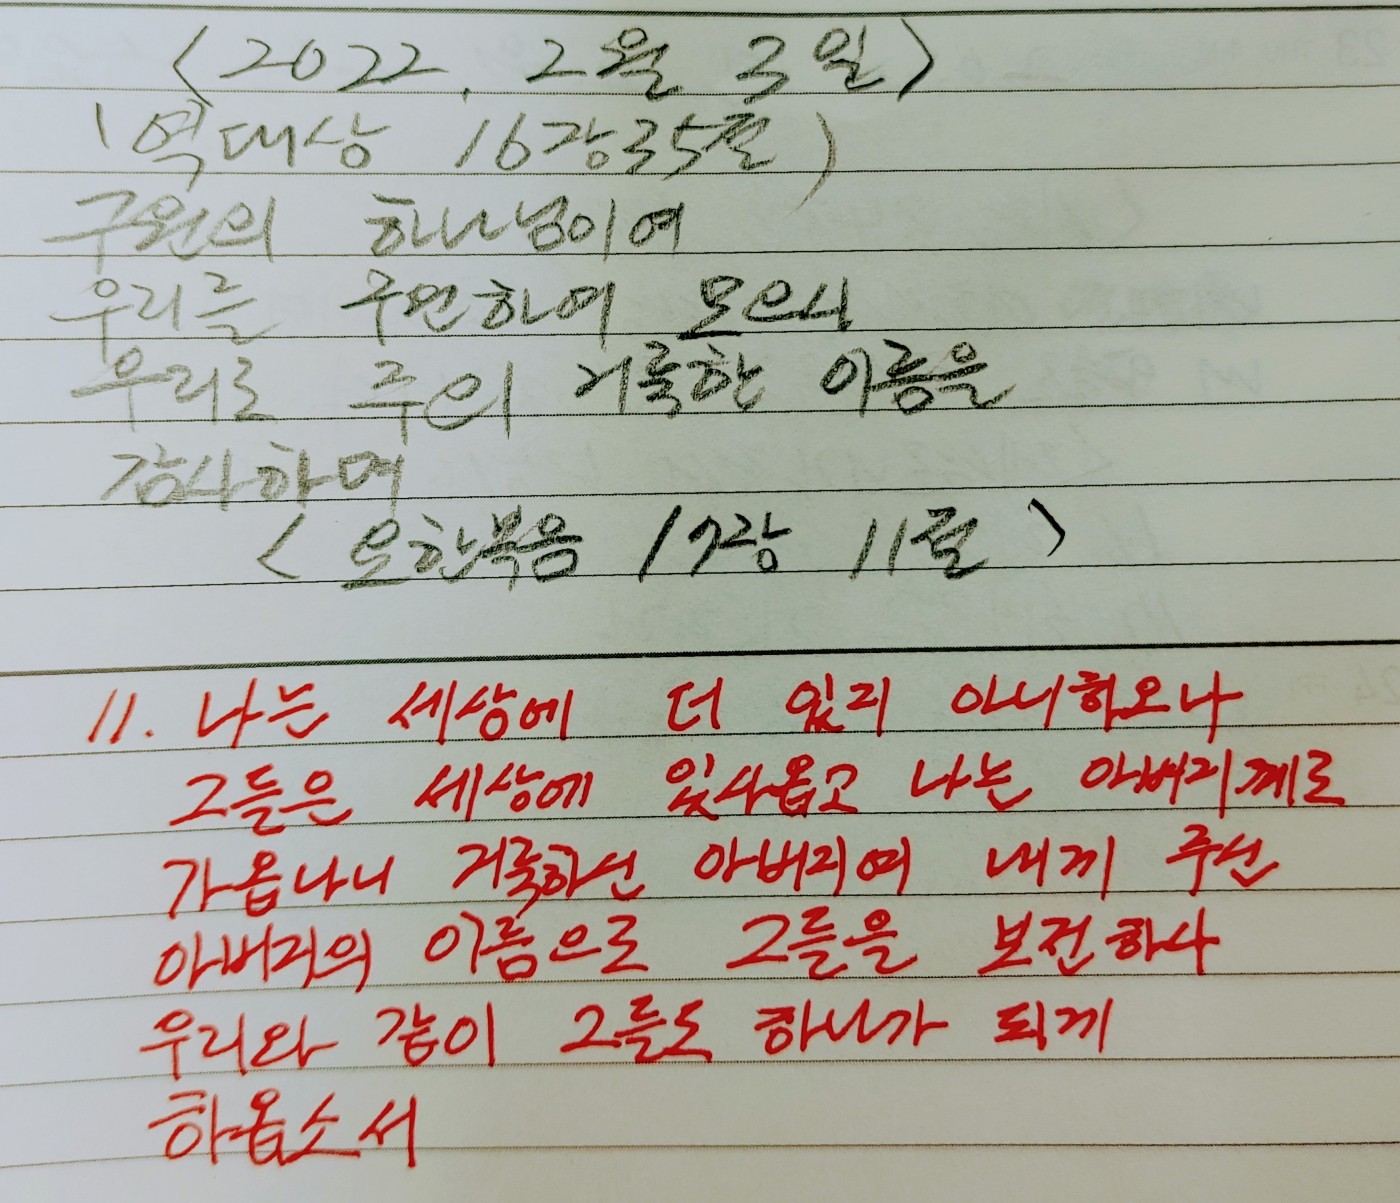 <2022. 2월 3일>
(역대상 16장35절)
구원의 하나님이여
우리를 구원하여 모으시
우리로 주의 거룩한 이름을
감사하며
<요한복음 17장 11절>
11. 나는 세상에 더 있지 아니하오나
그들은 세상에 있사옵고 나는 아버지께로
가옵나니 거룩하신 아버지여 내게 주신
아버지의 이름으로 그들을 보전하사
우리와 같이 그들도 하나가 되게
하옵소서